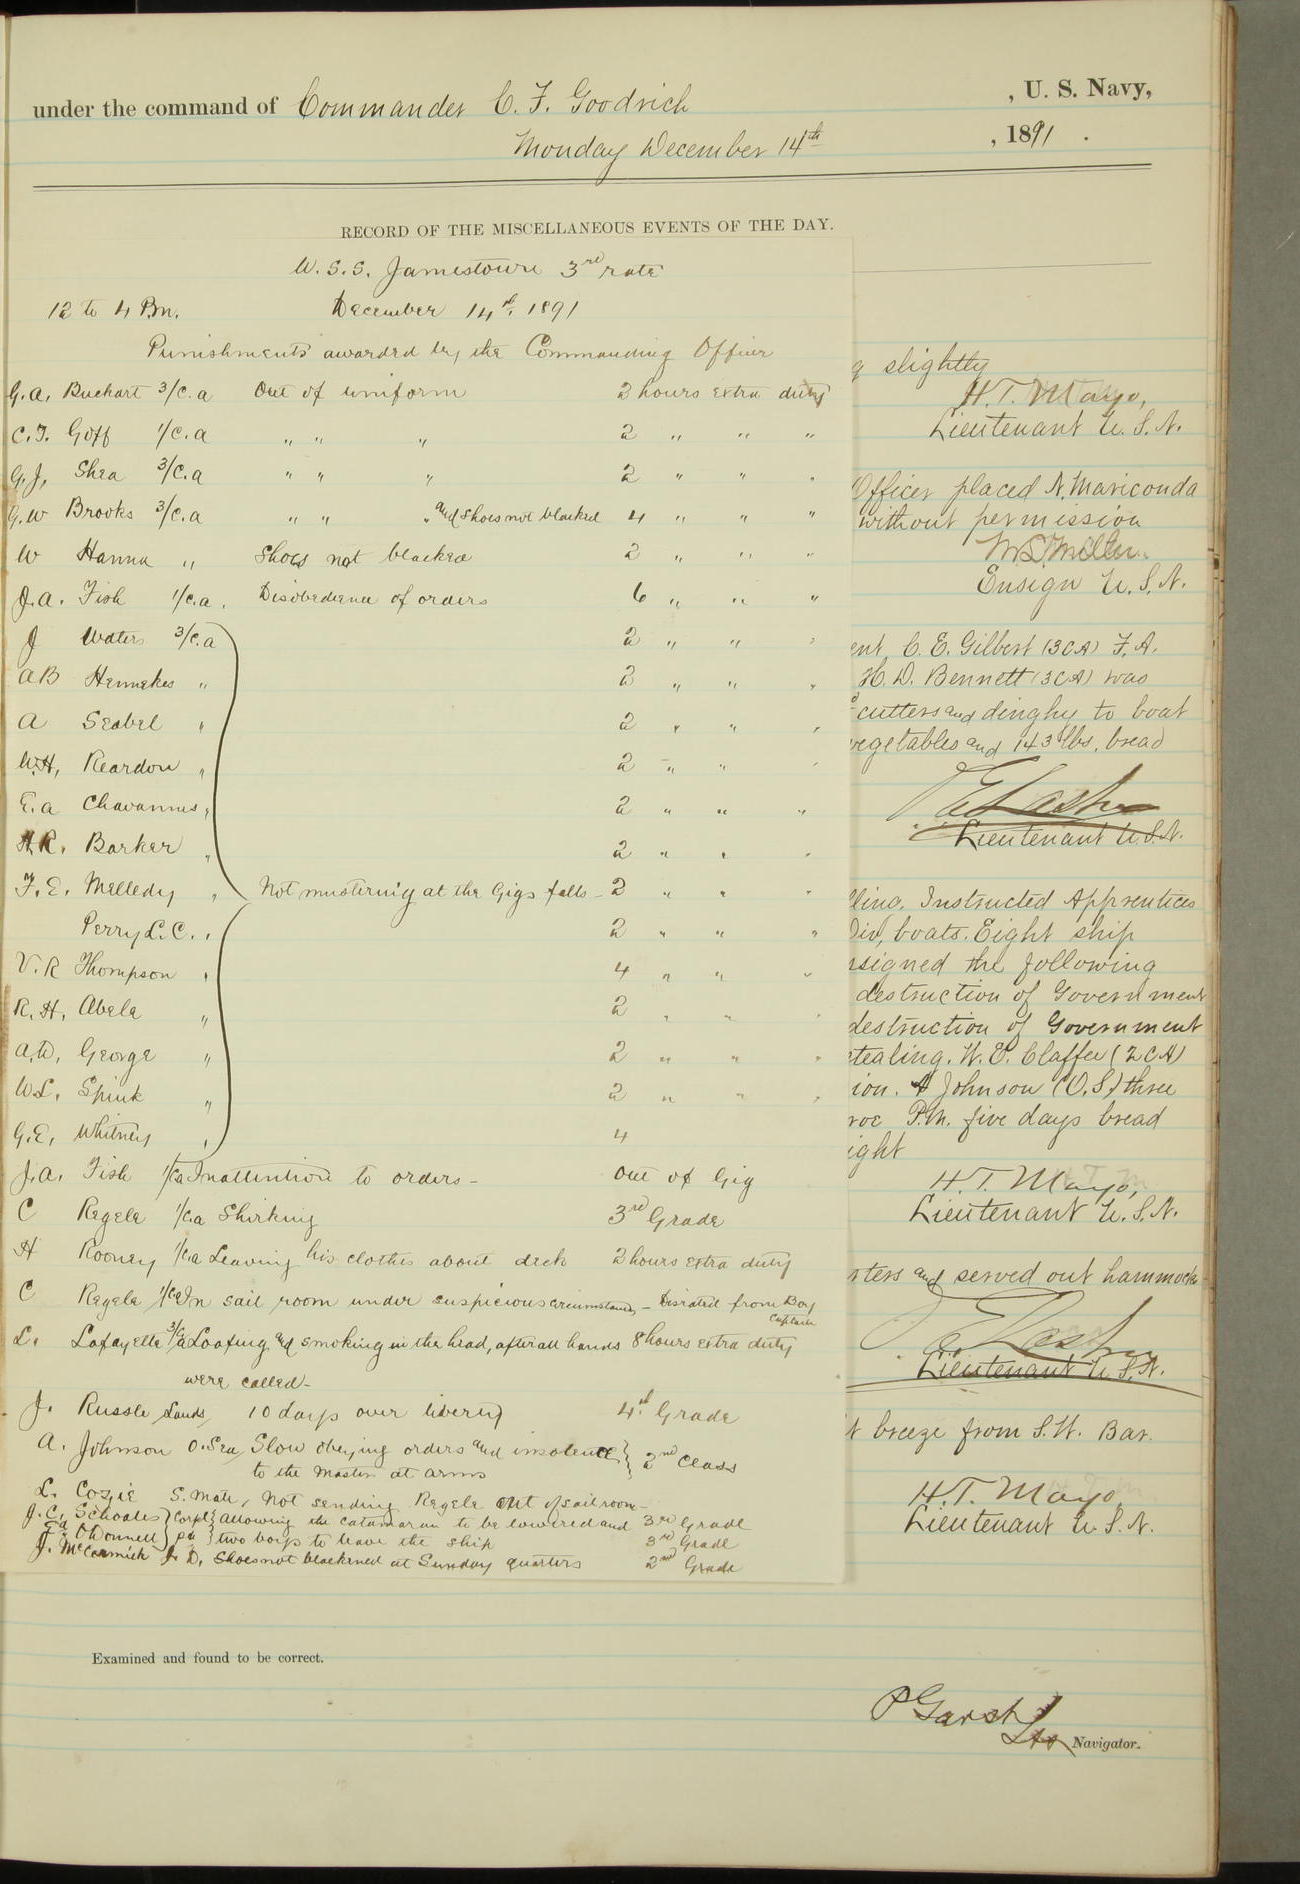 under the command of Commander C. F. Goodrich , U. S. Navy,
Monday December 14th , 1891 .
RECORD OF THE MISCELLANEOUS EVENTS OF THE DAY.
U. S. S. Jamestown 3rd rate
12 to 4 P.m. December 14th, 1891
Punishments awarded by the Commanding Officer
G. A. Buckart 3/c. a Out of uniform 2 hours extra duty
C. T. Goff 1/c. a " " " 2 " " "
G. J. Shea 3/c. a " " " 2 " " "
G. W Brooks 3/c. a " " " and Shoes not blacked 4 " " "
W Hanna " Shoes not blacked 2 " " "
J. a. Fish 1/c. a. Disobedience of orders 6 " " "
J Waters 3/c. a 2 " " "
AB Hennekes " 2 " " "
A Seabel " 2 " " "
W. H. Reardon " 2 " " "
E. a Chavannes " 2 " " "
H. R. Barker " 2 " " "
F. E. Melledy " Not mustering at the Gigs falls - 2 " " "
Perry L. C. " 2 " " "
V. R Thompson " 4 " " "
R. H. Abele " 2 " " "
A. D. George " 2 " " "
W. L. Spink " 2 " " "
G. E. Whitney " 4
J. a. Fish 1/ca Inattention to orders - Out of Gig
C Regele 1/c. a Shirking 3rd Grade
H Rooney 1/c. a Leaving his clothes about deck 2 hours extra duty
C Regele 1/ca In sail room under suspicious circumstances - Disrated from Boy
Captain
L. Lafayette 3/ca Loafing and smoking in the head, after all hands 8 hours extra duty
were called -
J. Russle Lands 10 days over liberty 4th Grade
A. Johnson O. Sea, Slow obeying orders and insolence } 2nd Class
to the Master at arms
L. Cozzie S. Mate, Not sending Regele out of sail room -
J. C. Schoales } Corpl } allowing the catamaran to be lowered and 3rd Grade
O'Donnell } } two boys to leave the ship 3rd Grade
J. McCormick J. D. Shoes not blackened at Sunday quarters 2nd Grade
slightly
H. T. Mayo,
Lieutenant U. S. N.
Officer placed N. Mariconda
without permission
Ensign U. S. N.
ent, C. E. Gilbert (3CA) F. A.
H. D. Bennett (3CA) was
cutters and dinghy to boat
vegetables and 143 lbs. bread
Lieutenant U. S. N.
lling. Instructed Apprentices
Div, boats. Eight ship
ssigned the following
destruction of Government
destruction of Government
stealing. W. E. Claffee (2CA)
ion. A Johnson (O.S.) three
roe P.M. five days bread
ight
H. T. Mayo,
Lieutenant U. S. N.
rters and served out hammocks
Lieutenant U. S. N.
t breeze from S. W. Bar.
H. T. Mayo
Lieutenant U. S. N.
Examined and found to be correct.
P Garst
Lt Navigator.